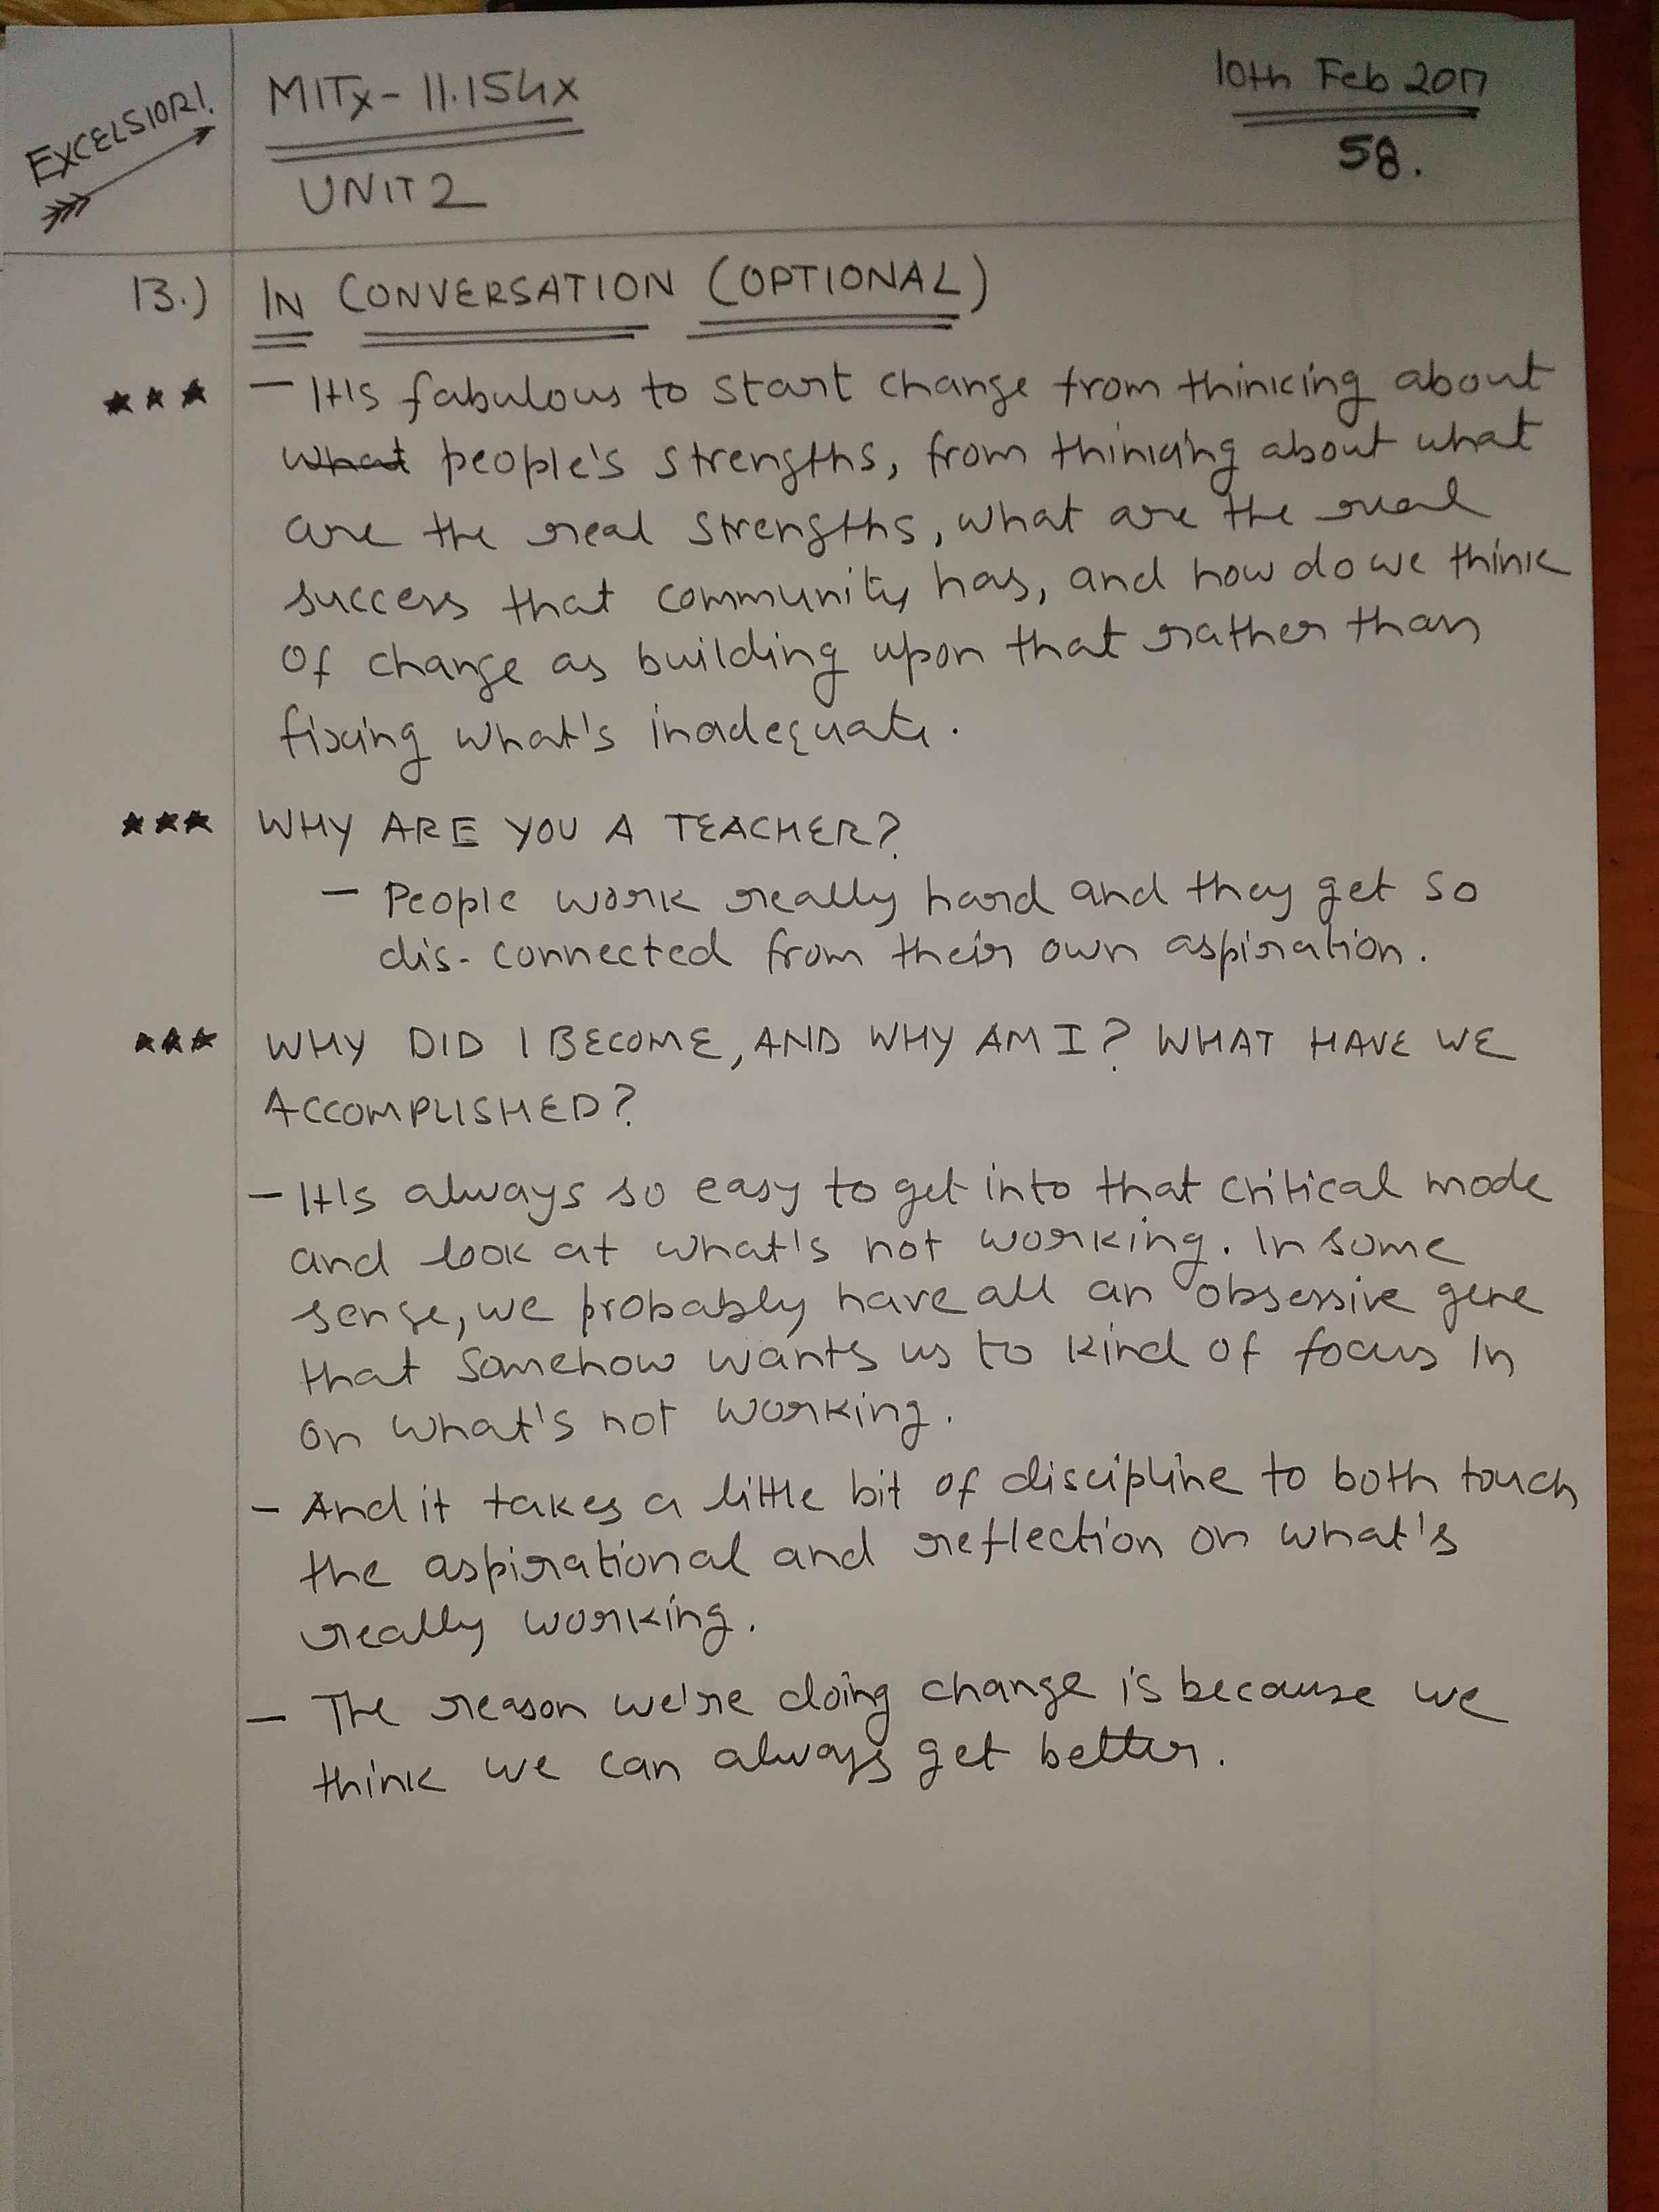 EXCELSIOR!
MITx - 11.154x
UNIT 2
10th Feb 2017
58.
13.) IN CONVERSATION (OPTIONAL)
*** - It's fabulous to start change from thinking about
what people's strengths, from thinking about what
are the real strengths, what are the real
success that community has, and how do we think
of change as building upon that rather than
fixing what's inadequate.
*** WHY ARE YOU A TEACHER?
- People work really hard and they get so
dis-connected from their own aspiration.
*** WHY DID I BECOME, AND WHY AM I? WHAT HAVE WE
ACCOMPLISHED?
- It's always so easy to get into that critical mode
and look at what's not working. In some
sense, we probably have all an obsessive gene
that somehow wants us to kind of focus in
on what's not working.
- And it takes a little bit of discipline to both touch
the aspirational and reflection on what's
really working.
- The reason we're doing change is because we
think we can always get better.